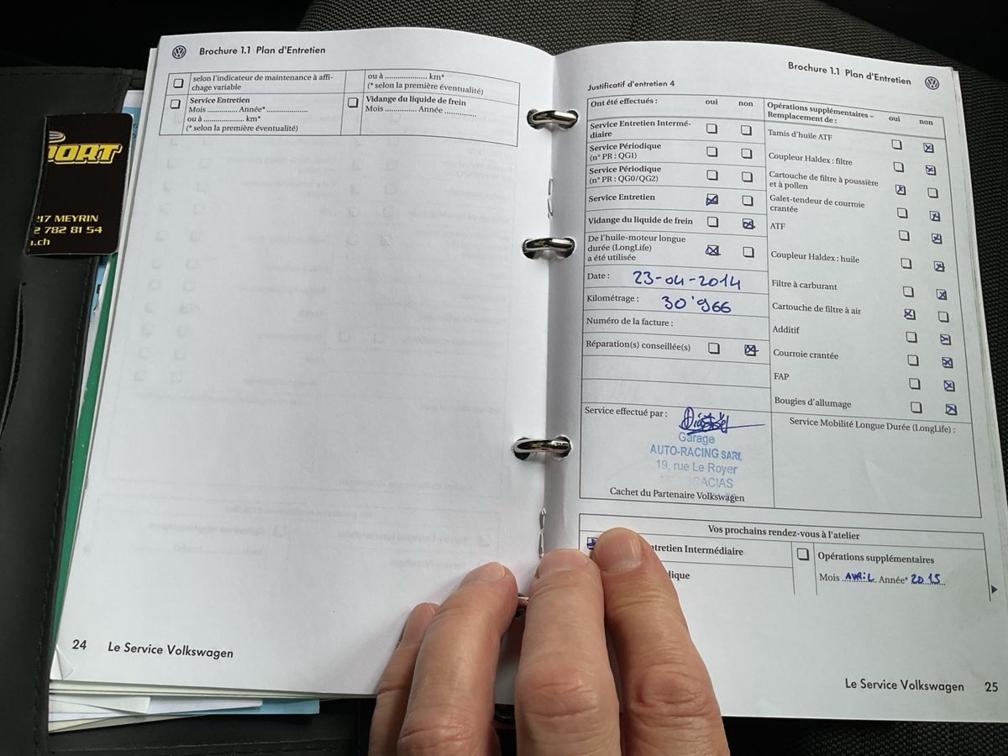 Brochure 1.1 Plan d'Entretien
selon l'indicateur de maintenance à affi-
chage variable
ou à .................. km*
(* selon la première éventualité)
Service Entretien
Mois ............ Année* ................
ou à .................. km*
(* selon la première éventualité)
Vidange du liquide de frein
Mois ............ Année .............
PORT
217 MEYRIN
2 782 81 54
.ch
24 Le Service Volkswagen
Brochure 1.1 Plan d'Entretien
Justificatif d'entretien 4
Ont été effectués : oui non
Service Entretien Intermé-
diaire
Service Périodique
(n° PR : QG1)
Service Périodique
(n° PR : QG0/QG2)
Service Entretien
Vidange du liquide de frein
De l'huile-moteur longue
durée (LongLife)
a été utilisée
Date : 23-04-2014
Kilométrage : 30'966
Numéro de la facture :
Réparation(s) conseillée(s)
Service effectué par :
Garage
AUTO-RACING SARL
19, rue Le Royer
ACACIAS
Cachet du Partenaire Volkswagen
Opérations supplémentaires – oui non
Remplacement de :
Tamis d'huile ATF
Coupleur Haldex : filtre
Cartouche de filtre à poussière
et à pollen
Galet-tendeur de courroie
crantée
ATF
Coupleur Haldex : huile
Filtre à carburant
Cartouche de filtre à air
Additif
Courroie crantée
FAP
Bougies d'allumage
Service Mobilité Longue Durée (LongLife) :
Vos prochains rendez-vous à l'atelier
ntretien Intermédiaire
dique
Opérations supplémentaires
Mois AVRIL Année* 2015
Le Service Volkswagen 25